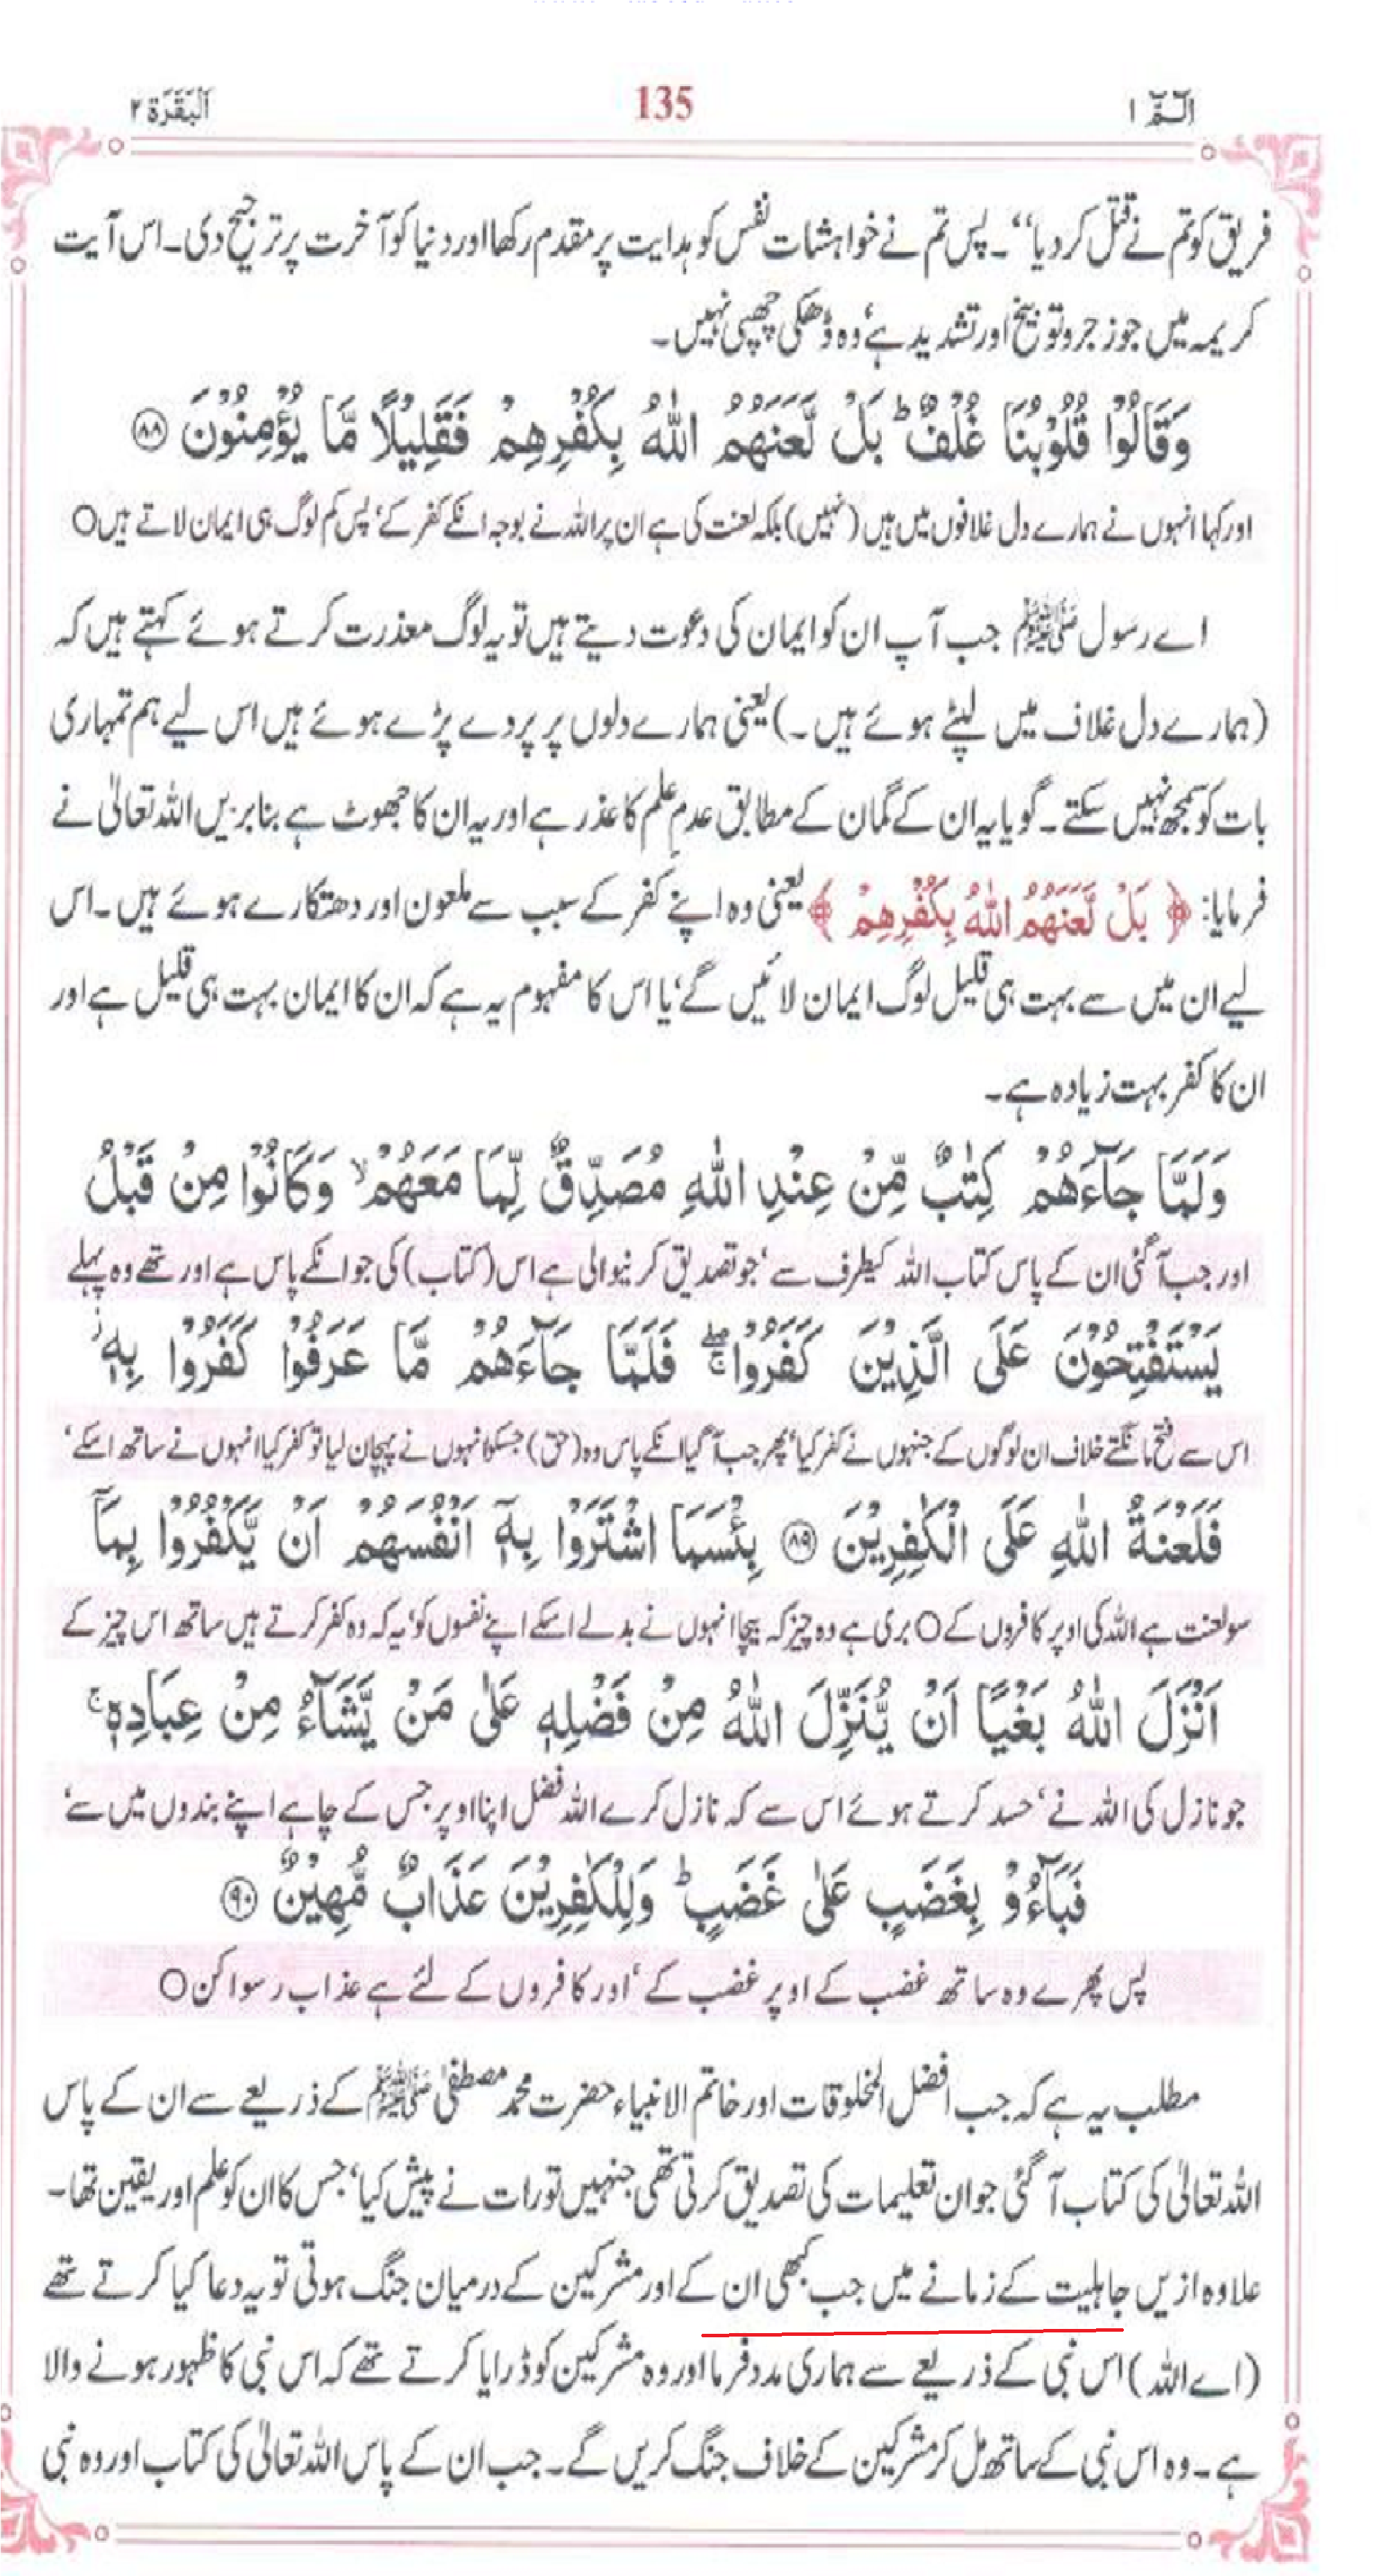 الٓمّٓ ١ 135 اَلْبَقَرَة ٢
فریق کو تم نے قتل کر دیا‘‘۔ پس تم نے خواہشات نفس کو ہدایت پر مقدم رکھا اور دنیا کو آخرت پر ترجیح دی۔ اس آیت
کریمہ میں جو زجر و توبیخ اور تشدید ہے‘ وہ ڈھکی چھپی نہیں۔
وَقَالُوْا قُلُوْبُنَا غُلْفٌ ؕ بَلْ لَّعَنَهُمُ اللّٰهُ بِكُفْرِهِمْ فَقَلِيْلًا مَّا يُؤْمِنُوْنَ ﴿٨٨﴾
اور کہا انہوں نے ہمارے دل غلافوں میں ہیں (نہیں) بلکہ لعنت کی ہے ان پر اللہ نے بوجہ انکے کفر کے‘ پس کم لوگ ہی ایمان لاتے ہیں○
اے رسول ﷺ جب آپ ان کو ایمان کی دعوت دیتے ہیں تو یہ لوگ معذرت کرتے ہوئے کہتے ہیں کہ
(ہمارے دل غلاف میں لپٹے ہوئے ہیں۔) یعنی ہمارے دلوں پر پردے پڑے ہوئے ہیں اس لیے ہم تمہاری
بات کو سمجھ نہیں سکتے۔ گویا یہ ان کے گمان کے مطابق عدمِ علم کا عذر ہے اور یہ ان کا جھوٹ ہے بنابریں اللہ تعالیٰ نے
فرمایا: ﴿ بَلْ لَّعَنَهُمُ اللّٰهُ بِكُفْرِهِمْ ﴾ یعنی وہ اپنے کفر کے سبب سے ملعون اور دھتکارے ہوئے ہیں۔ اس
لیے ان میں سے بہت ہی قلیل لوگ ایمان لائیں گے‘ یا اس کا مفہوم یہ ہے کہ ان کا ایمان بہت ہی قلیل ہے اور
ان کا کفر بہت زیادہ ہے۔
وَلَمَّا جَآءَهُمْ كِتٰبٌ مِّنْ عِنْدِ اللّٰهِ مُصَدِّقٌ لِّمَا مَعَهُمْ ۙ وَكَانُوْا مِنْ قَبْلُ
اور جب آ گئی ان کے پاس کتاب اللہ کیطرف سے‘ جو تصدیق کرنیوالی ہے اس (کتاب) کی جو انکے پاس ہے اور تھے وہ پہلے
يَسْتَفْتِحُوْنَ عَلَى الَّذِيْنَ كَفَرُوْا ۖۚ فَلَمَّا جَآءَهُمْ مَّا عَرَفُوْا كَفَرُوْا بِهٖ ؗ
اس سے فتح مانگتے خلاف ان لوگوں کے جنہوں نے کفر کیا‘ پھر جب آ گیا انکے پاس وہ (حق) جسکو انہوں نے پہچان لیا تو کفر کیا انہوں نے ساتھ اسکے‘
فَلَعْنَةُ اللّٰهِ عَلَى الْكٰفِرِيْنَ ﴿٨٩﴾ بِئْسَمَا اشْتَرَوْا بِهٖٓ اَنْفُسَهُمْ اَنْ يَّكْفُرُوْا بِمَآ
سو لعنت ہے اللہ کی اوپر کافروں کے○ بری ہے وہ چیز کہ بیچا انہوں نے بدلے اسکے اپنے نفسوں کو‘ یہ کہ وہ کفر کرتے ہیں ساتھ اس چیز کے
اَنْزَلَ اللّٰهُ بَغْيًا اَنْ يُّنَزِّلَ اللّٰهُ مِنْ فَضْلِهٖ عَلٰى مَنْ يَّشَآءُ مِنْ عِبَادِهٖ ۚ
جو نازل کی اللہ نے‘ حسد کرتے ہوئے اس سے کہ نازل کرے اللہ فضل اپنا اوپر جس کے چاہے اپنے بندوں میں سے‘
فَبَآءُوْ بِغَضَبٍ عَلٰى غَضَبٍ ؕ وَلِلْكٰفِرِيْنَ عَذَابٌ مُّهِيْنٌ ﴿٩٠﴾
پس پھرے وہ ساتھ غضب کے اوپر غضب کے‘ اور کافروں کے لئے ہے عذاب رسوا کن○
مطلب یہ ہے کہ جب افضل المخلوقات اور خاتم الانبیاء حضرت محمد مصطفیٰ ﷺ کے ذریعے سے ان کے پاس
اللہ تعالیٰ کی کتاب آ گئی جو ان تعلیمات کی تصدیق کرتی تھی جنہیں تورات نے پیش کیا‘ جس کا ان کو علم اور یقین تھا۔
علاوہ ازیں جاہلیت کے زمانے میں جب کبھی ان کے اور مشرکین کے درمیان جنگ ہوتی تو یہ دعا کیا کرتے تھے
(اے اللہ) اس نبی کے ذریعے سے ہماری مدد فرما اور وہ مشرکین کو ڈرایا کرتے تھے کہ اس نبی کا ظہور ہونے والا
ہے۔ وہ اس نبی کے ساتھ مل کر مشرکین کے خلاف جنگ کریں گے۔ جب ان کے پاس اللہ تعالیٰ کی کتاب اور وہ نبی